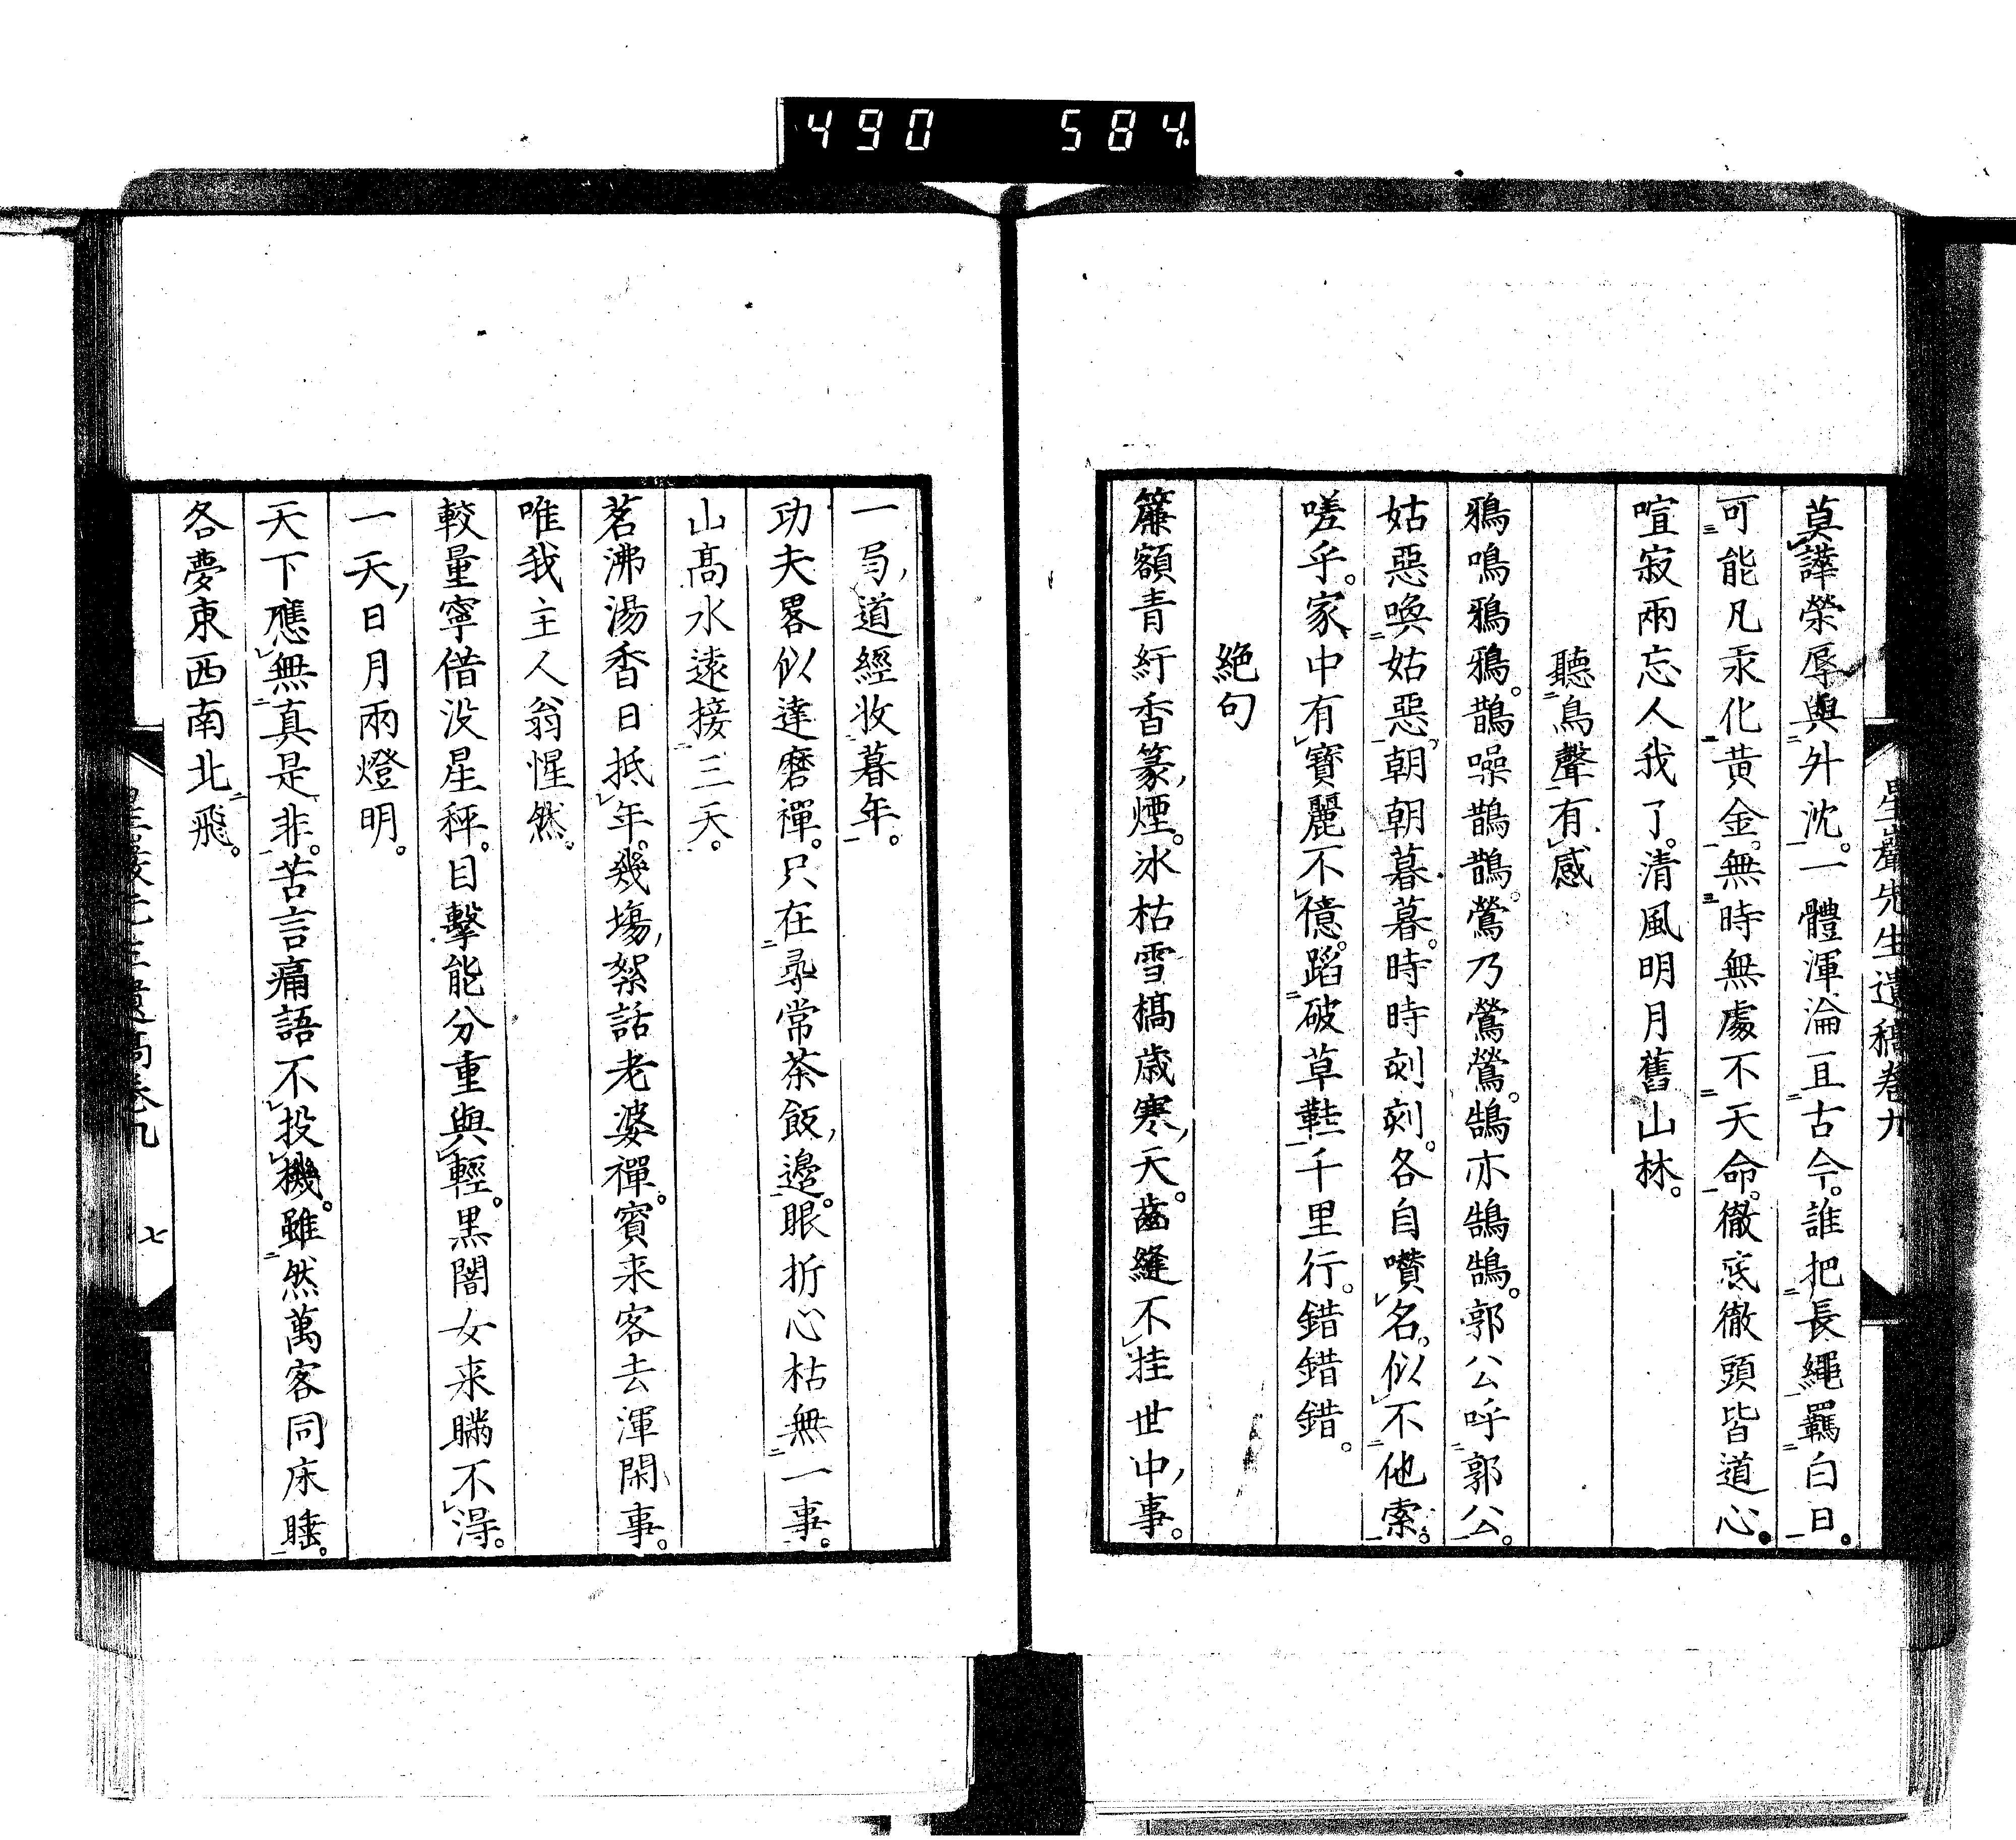 490 584
星巖先生遺稿卷九
莫譁榮辱與升沈。一體渾淪亙古今。誰把長繩羈白日。
可能凡汞化黃金。無時無處不天命。徹底徹頭皆道心。
喧寂兩忘人我了。清風明月舊山林。
聽鳥聲有感
鴉鳴鴉鴉。鵲噪鵲鵲。鶯乃鶯鶯。鵠亦鵠鵠。郭公呼郭公。
姑惡喚姑惡。朝朝暮暮。時時刻刻。各自嚽名。似不他索。
嗟乎。家中有寶麗不億。蹈破草鞋千里行。錯錯錯。
絕句
簾額青紆香篆煙。冰枯雪槁歲寒天。齒縫不挂世中事。
一㢧道經收暮年。
功夫畧似達磨禪。只在尋常茶飯邊。眼折心枯無一事。
山高水遠接三天。
茗沸湯香日抵年。幾塲絮話老婆禪。賓来客去渾閑事。
唯我主人翁惺然。
較量寧借没星秤。目擊能分重與輕。黒闇女来瞞不淂。
一天日月兩燈明。
天下應無真是非。苦言痛語不投機。雖然萬客同床睡。
各夢東西南北飛。
星巖先生遺稿卷九 七